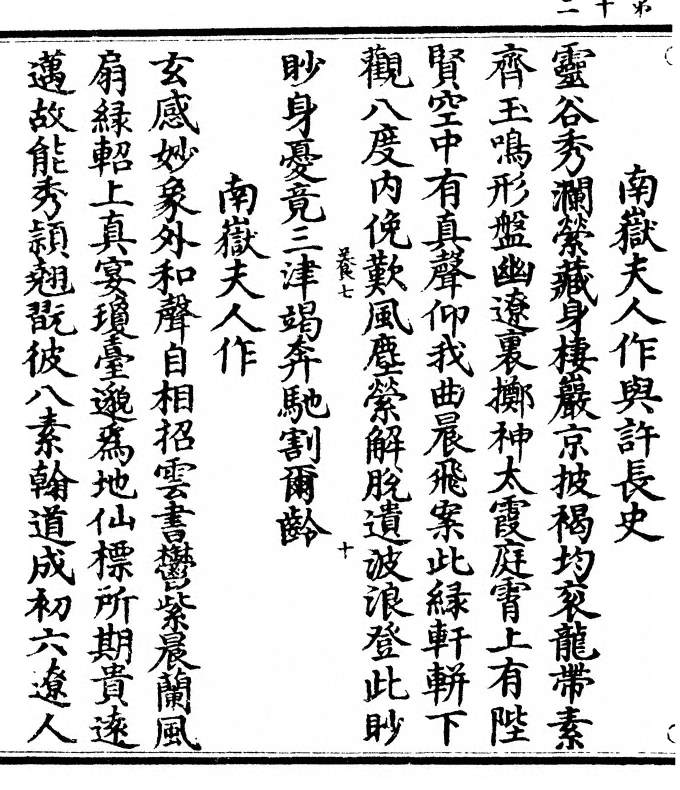 第十二
南嶽夫人作與許長史
靈谷秀瀾縈藏身棲巖京披褐均衮龍帶素
齊玉鳴形盤幽遼裏擲神太霞庭霄上有陛
賢空中有真聲仰我曲晨飛案此緑軒軿下
觀八度内俛歎風塵縈解脫遺波浪登此眇
養七
十
眇身憂竟三津竭奔馳割爾齡
南嶽夫人作
玄感妙象外和聲自相招雲書鬱紫晨蘭風
扇緑軺上真宴瓊臺邈爲地仙標所期貴遠
邁故能秀頴翹翫彼八素翰道成初六遼人